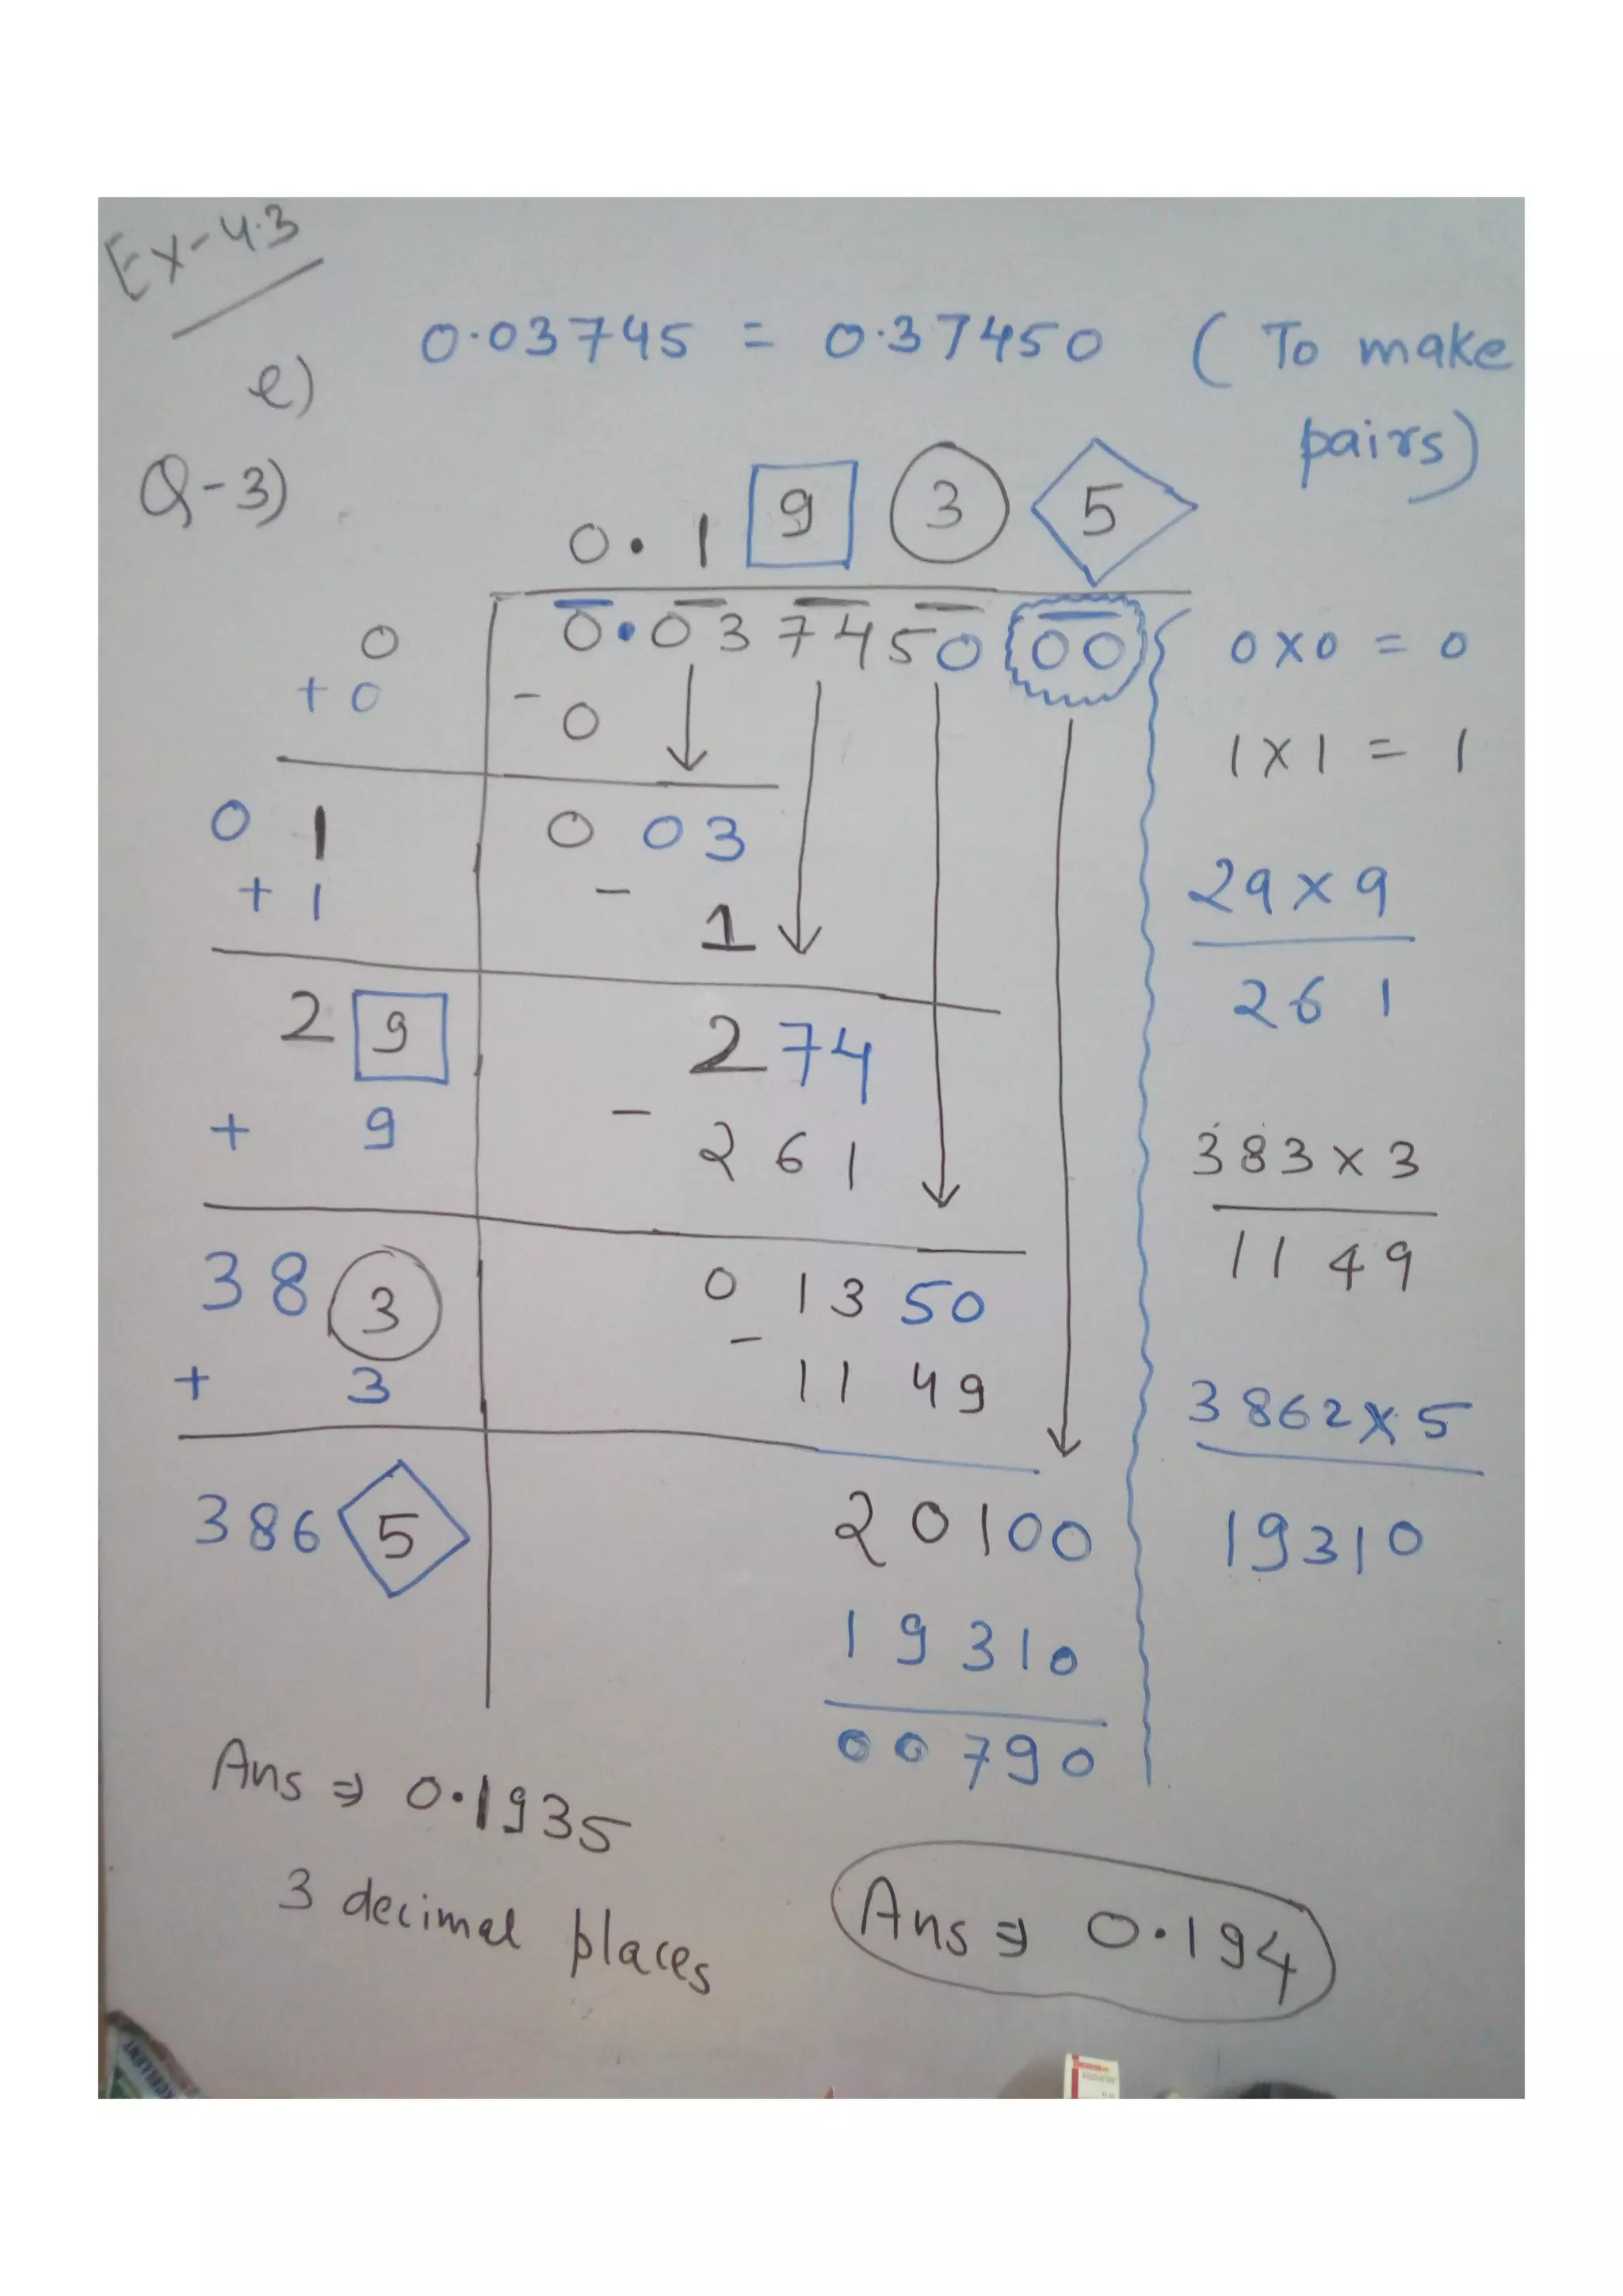 Ex-4.3
e) 0.03745 = 0.37450 ( To make
pairs)
Q-3)
0.1 9 3 5
0 0.03 74 50 00
+ 0 - 0
0 1 0 03
+ 1 - 1
2 9 2 74
+ 9 - 2 6 1
38 3 0 13 50
+ 3 - 11 49
386 5 20100
19310
00790
0x0 = 0
1x1 = 1
29 x 9
261
383 x 3
1149
3862 x 5
19310
Ans ⇒ 0.1935
3 decimal places
Ans ⇒ 0.194